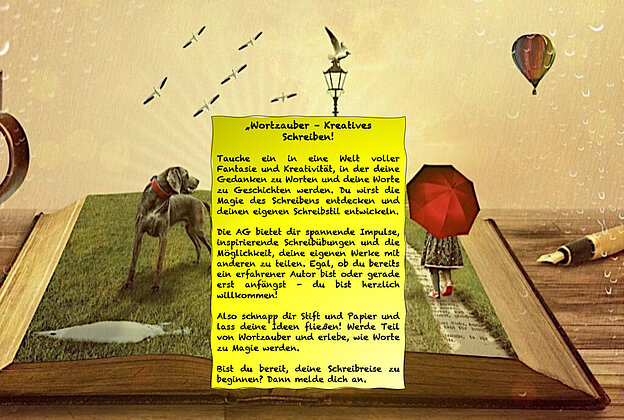 „Wortzauber – Kreatives
Schreiben!
Tauche ein in eine Welt voller
Fantasie und Kreativität, in der deine
Gedanken zu Worten und deine Worte
zu Geschichten werden. Du wirst die
Magie des Schreibens entdecken und
deinen eigenen Schreibstil entwickeln.
Die AG bietet dir spannende Impulse,
inspirierende Schreibübungen und die
Möglichkeit, deine eigenen Werke mit
anderen zu teilen. Egal, ob du bereits
ein erfahrener Autor bist oder gerade
erst anfängst – du bist herzlich
willkommen!
Also schnapp dir Stift und Papier und
lass deine Ideen fließen! Werde Teil
von Wortzauber und erlebe, wie Worte
zu Magie werden.
Bist du bereit, deine Schreibreise zu
beginnen? Dann melde dich an.